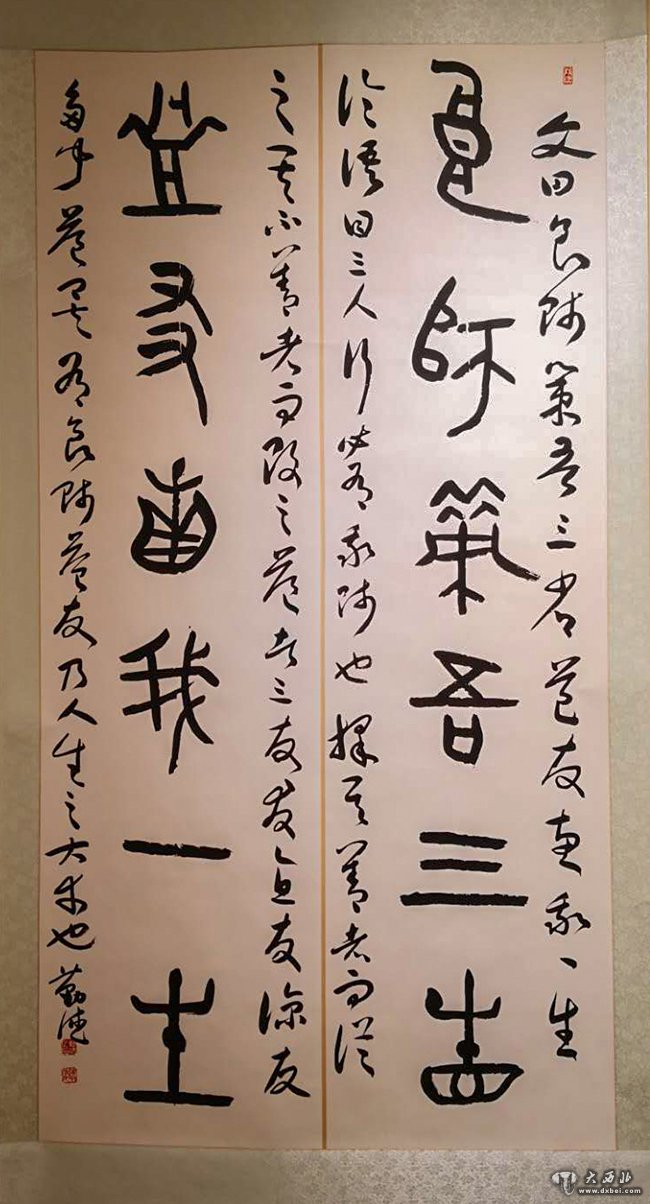 文曰良師策吾三省益友惠我一生
良師策吾三省
論語曰三人行必有我師也擇其善者而從
之其不善者而改之益者三友友直友諒友
益友惠我一生
多聞益矣有良師益友乃人生之大幸也
大西北
www.dxbei.com